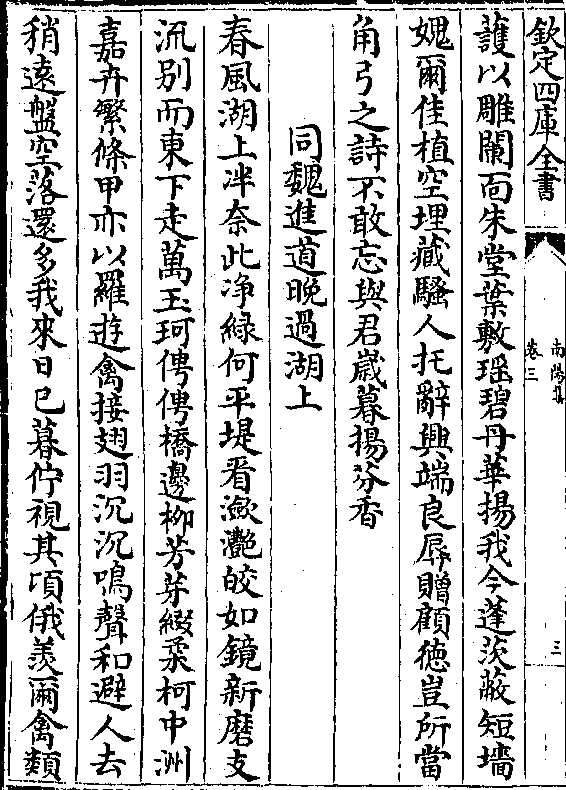 欽定四庫全書
南陽集
卷三
三
護以雕闌面朱堂葉敷瑶碧丹華揚我今蓬茨蔽短墻
媿爾佳植空埋藏騷人托辭興端良辱贈顧徳豈所當
角弓之詩不敢忘與君嵗暮揚芬香
同魏進道晚過湖上
春風湖上泮奈此浄緑何平堤看瀲灧皎如鏡新磨支
流别而東下走萬玉珂俜俜橋邊柳芳芽綴柔柯中洲
嘉卉繁條甲亦以羅遊禽接翅羽沉沉鳴聲和避人去
稍逺盤空落還多我來日已暮佇視其項俄羡爾禽類